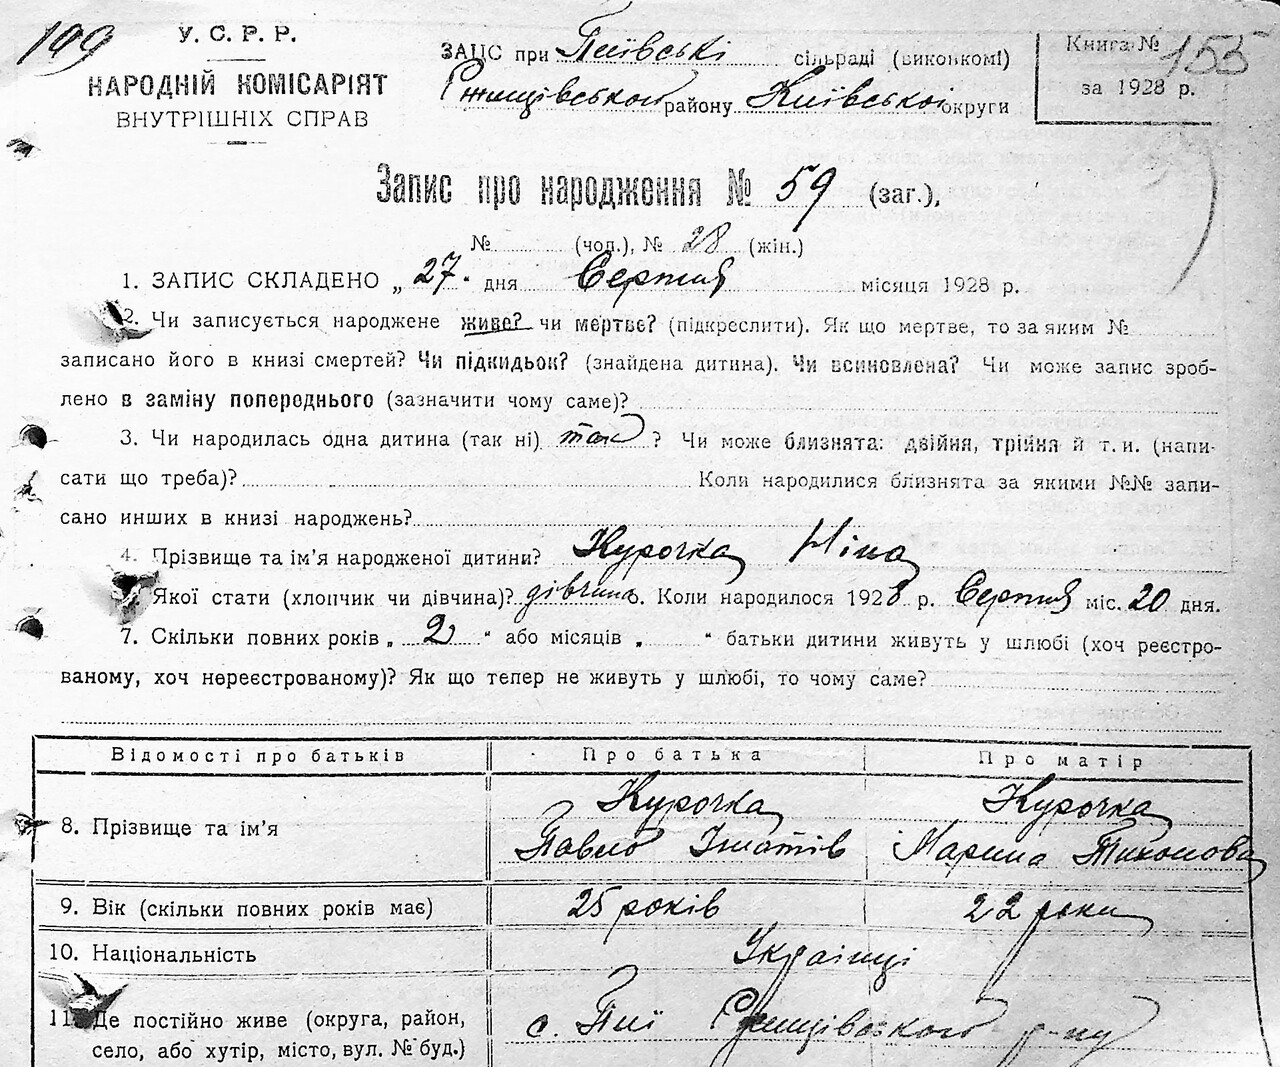 199
У. С. Р. Р.
НАРОДНІЙ КОМІСАРІЯТ
ВНУТРІШНІХ СПРАВ
ЗАГС при Пиївські сільраді (виконкомі)
Ржищівського району Київської округи
Книга № 155
за 1928 р.
Запис про народження № 59 (заг.),
№ (чол.), № 28 (жін.)
1. ЗАПИС СКЛАДЕНО „27“ дня Серпня місяця 1928 р.
2. Чи записується народжене живе? чи мертве? (підкреслити). Як що мертве, то за яким №
записано його в книзі смертей? Чи підкидьок? (знайдена дитина). Чи всиновлена? Чи може запис зроб-
лено в заміну попероднього (зазначити чому саме)?
3. Чи народилась одна дитина (так ні) так ? Чи може близнята: двійня, трійня й т. и. (напи-
сати що треба)? Коли народилися близнята за якими №№ запи-
сано инших в книзі народжень?
4. Прізвище та ім’я народженої дитини? Курочка Ніна
Якої стати (хлопчик чи дівчина)? дівчина 6. Коли народилося 1928 р. Серпня міс. 20 дня.
7. Скільки повних років „ 2 “ або місяців „ “ батьки дитини живуть у шлюбі (хоч реєстро-
ваному, хоч нереєстрованому)? Як що тепер не живуть у шлюбі, то чому саме?
Відомості про батьків Про батька Про матір
8. Прізвище та ім’я Курочка Курочка
Павло Ігнатів Марина Тихонова
9. Вік (скільки повних років має) 25 років 22 роки
10. Національність Українці
11. Де постійно живе (округа, район, с. Пиї Ржищівського р-ну
село, або хутір, місто, вул. № буд.)